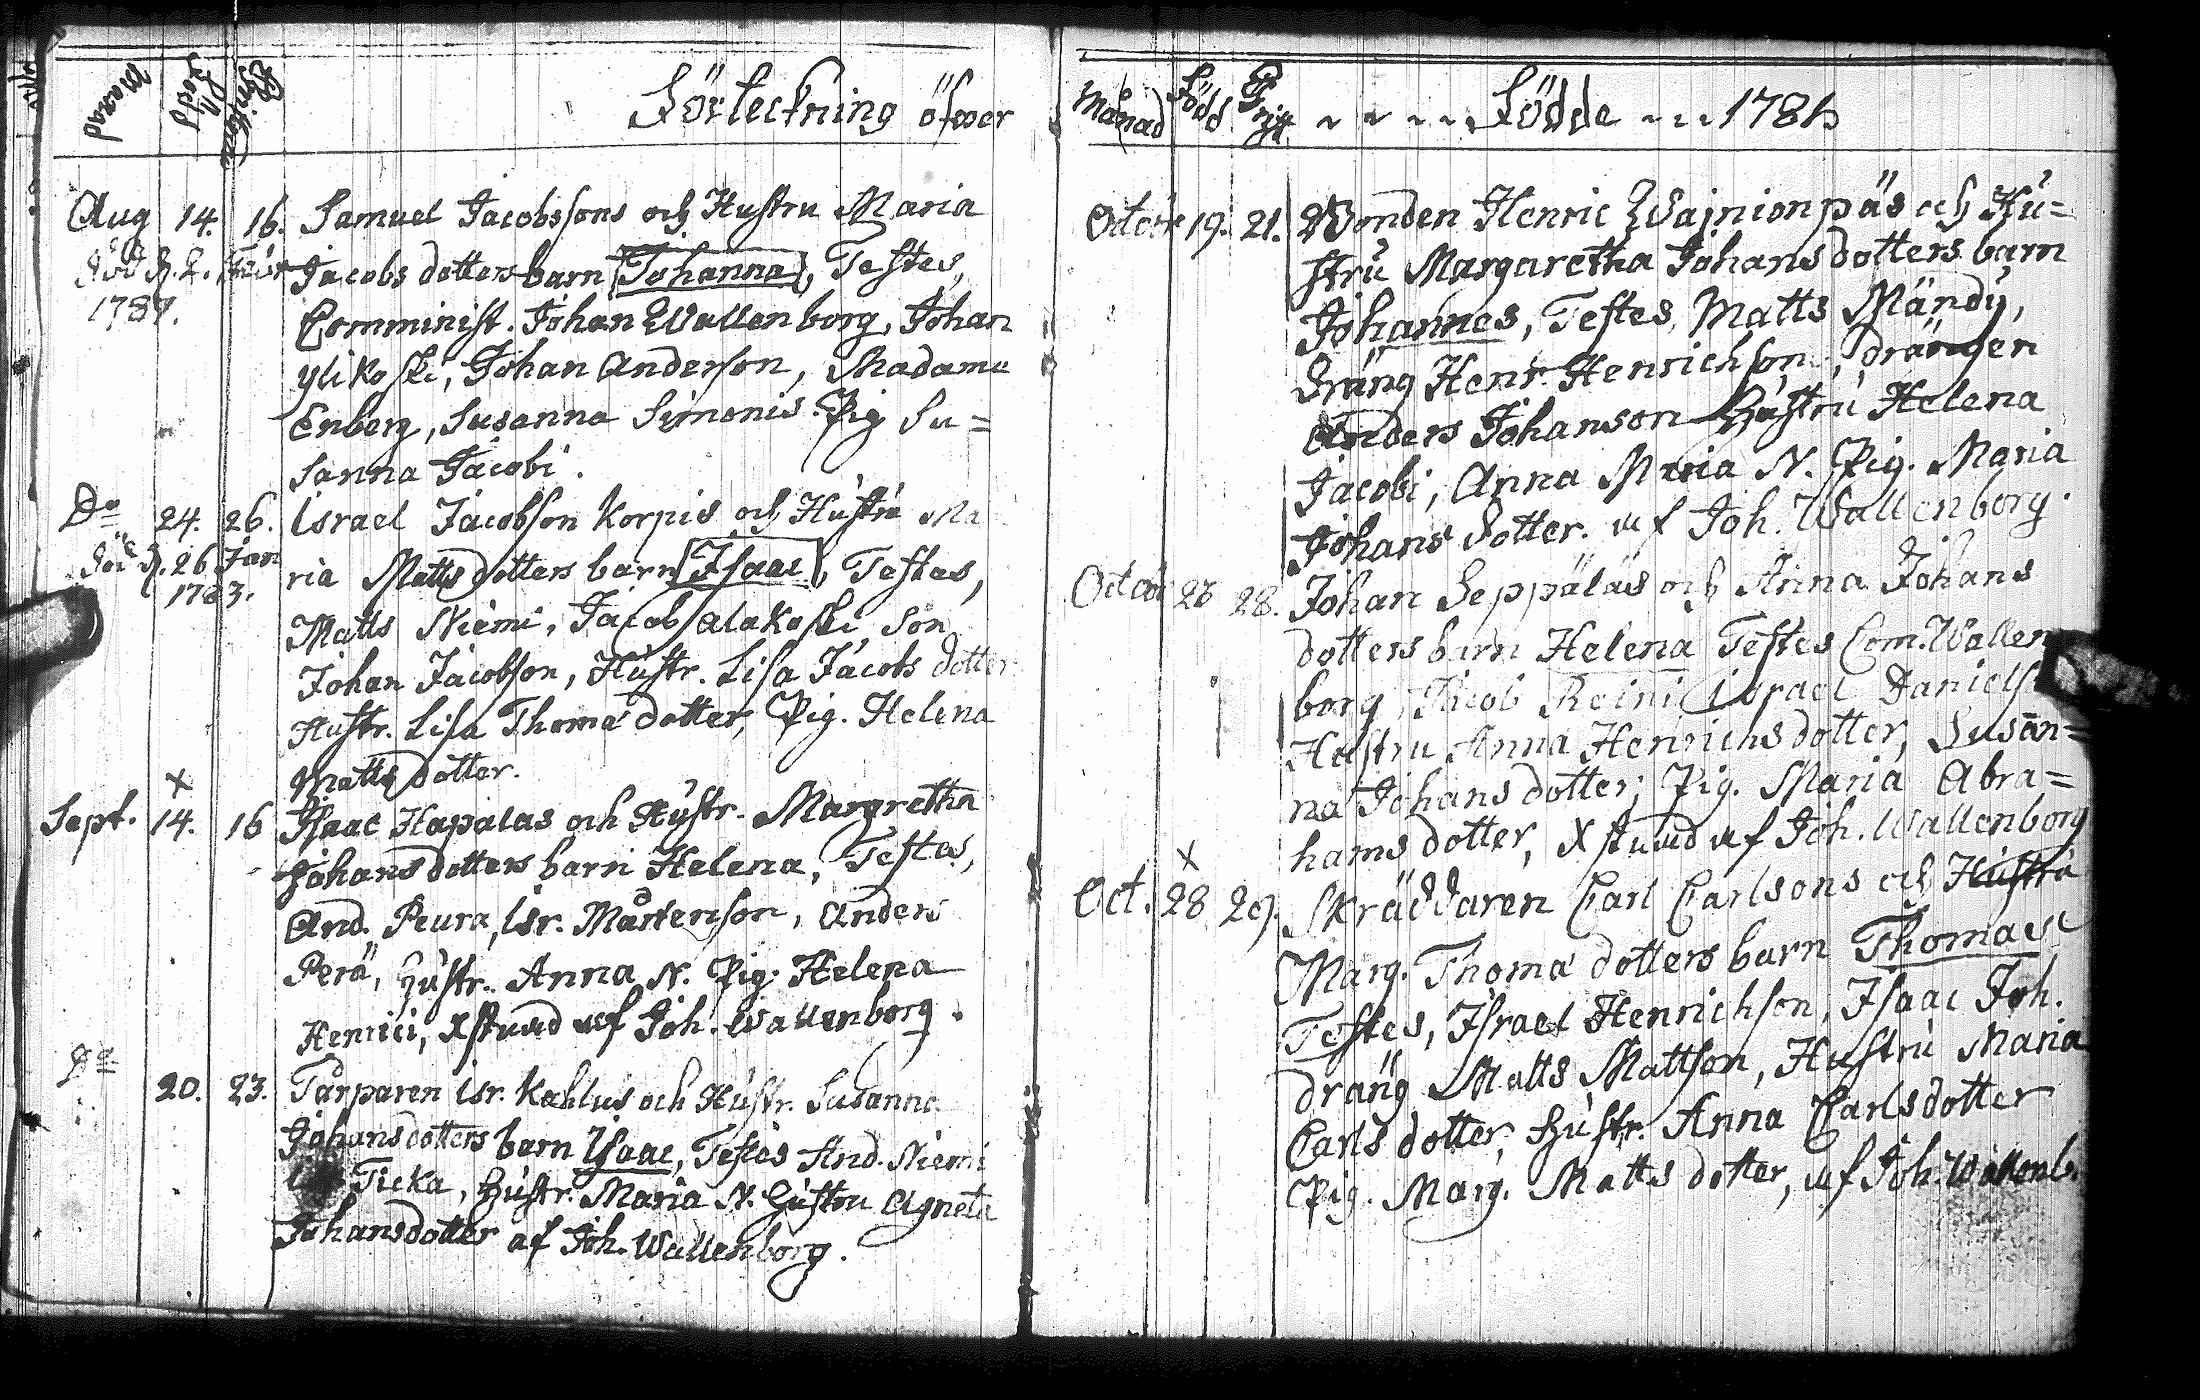 Månad Född Christnu Förteckning öfwer
Aug 14. 16. Samuel Jacobssons och Hustru Maria
död d. 2. Febr Jacobs dotters barn Johanna, Testes,
1787. Comminist. Johan Wallenborg, Johan
Ylikoski, Johan Anderson, Madame
Enberg, Susanna Simonis. Pig Su=
sanna Jacobi.
Do 24. 26. Israel Jacobson Korpis och Hustru Ma
död d. 26 Jan ria Mattsdotters barn Isaac, Testes,
Matts Niemi, Jacob Alakoski, Son
Johan Jacobson, Hustr. Lisa Jacobs dotter
Hustr. Lisa Thomæ dotter, Pig. Helena
Matts dotter.
x
Sept. 14. 16 Isaac Hapalas och Hustr. Margretha
Johansdotters barn Helena, Testes,
And. Peura, Isr. Mårtenson, Anders
Perä, Hustr. Anna N. Pig. Helena
Henrici, Xstnad af Joh. Wallenborg.
Do 20. 23. Tarparen Isr. Kahlus och Hustr. Susanna
Johansdotters barn Isaac, Testes And. Niemi
Ticka, Hustr. Maria N. Hustru Agneta
Johansdotter af Joh. Wallenborg.
Månad Född Födde 178
Octobr 19. 21. Bonden Henric Wajnionpäs och Hu=
stru Margaretha Johansdotters barn
Johannes, Testes, Matts Mändy,
Dräng Henr. Henrichson, drängen
Anders Johanson Hustru Helena
Jacobi, Anna Maria N. Pig. Maria
Johans dotter. af Joh. Wallenborg.
Octobr 28. Johan Seppälas och Anna Johans
dotters barn Helena Testes Com. Wallen
borg, Jacob Reini Israel Daniels
Hustru Anna Henrichs dotter, Susan=
na Johans dotter, Pig. Maria Abra=
hams dotter, Xstnad af Joh. Wallenborg
x
Oct. 28 29. Skräddaren Carl Carlsons och Hustru
Marg. Thomæ dotters barn Thomas
Testes, Israel Henrichson, Isaac Joh.
dräng Matts Mattson, Hustru Maria
Carls dotter, Hustr. Anna Carlsdotter
Pig. Marg. Matts dotter, af Joh. Wallenb.